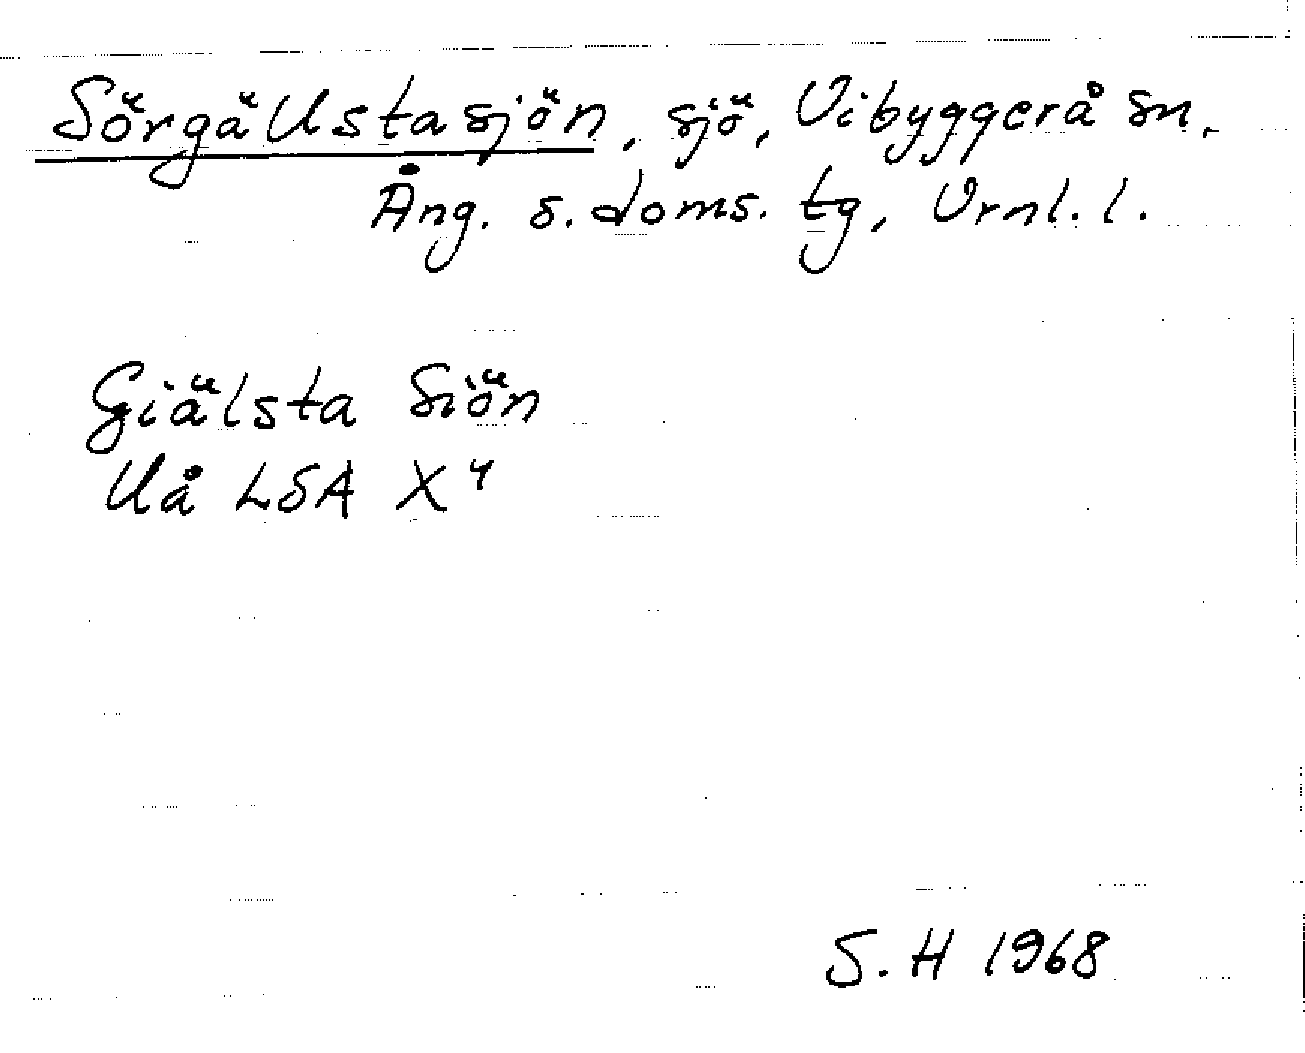 Sörgällstasjön, sjö, Vibyggerå sn.
Ång. s. doms. tg, Vrnl. l.
Giälsta Siön
Uå LSA X4
S. H 1968